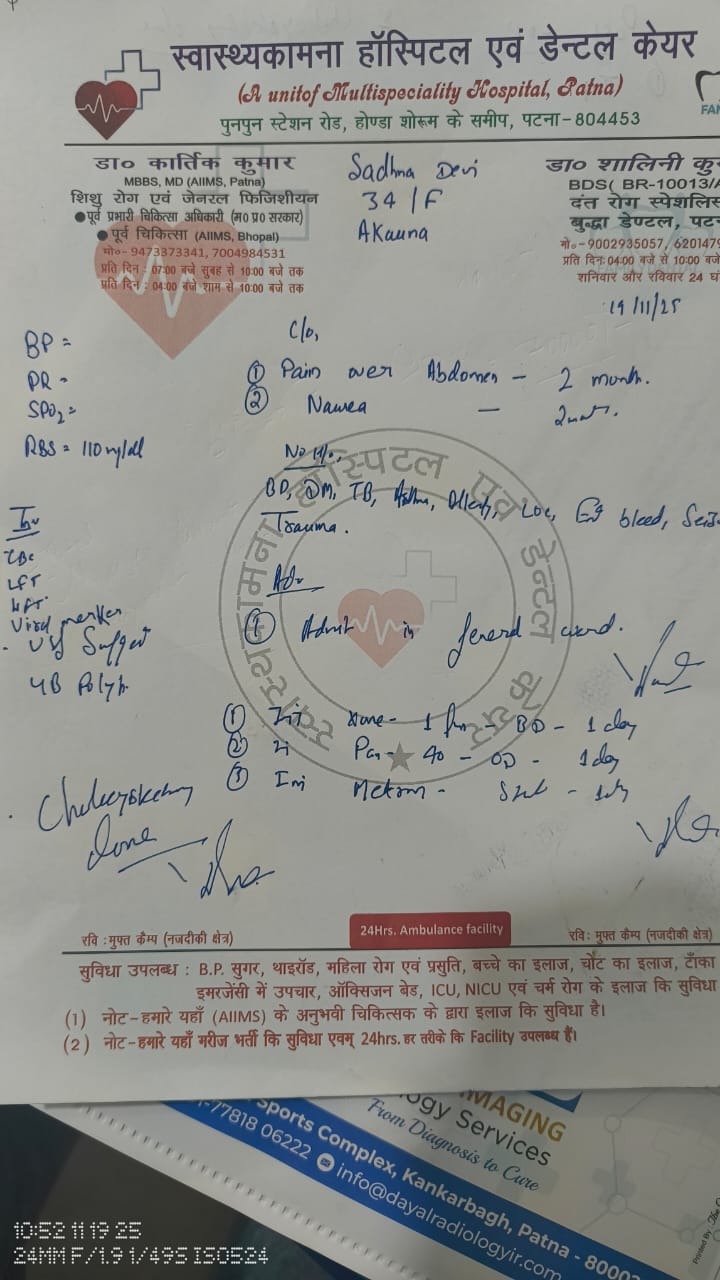 स्वास्थ्यकामना हॉस्पिटल एवं डेन्टल केयर
(A unitof Multispeciality Hospital, Patna)
FAM
पुनपुन स्टेशन रोड, होण्डा शोरूम के समीप, पटना-804453
डा० कार्तिक कुमार
MBBS, MD (AIIMS, Patna)
शिशु रोग एवं जेनरल फिजिशीयन
●पूर्व प्रभारी चिकित्सा अधिकारी (म० प्र० सरकार)
●पूर्व चिकित्सा (AIIMS, Bhopal)
मो०- 9473373341, 7004984531
प्रति दिन : 07:00 बजे सुबह से 10:00 बजे तक
प्रति दिन : 04:00 बजे शाम से 10:00 बजे तक
Sadhna Devi
34 / F
Akauna
डा० शालिनी कु
BDS( BR-10013/A
दंत रोग स्पेशलिस
बुद्धा डेण्टल, पट
मो०-9002935057, 6201479
प्रति दिन: 04:00 बजे से 10:00 बजे
शनिवार और रविवार 24 घं
19/11/25
BP =
PR -
SPO2 =
RBS = 110 mg/dl
C/o,
① Pain over Abdomen - 2 month.
② Nausea -
No H/o.
BP, DM, TB, Asthma, Allergy, LOC, bleed,
Trauma.
Inv
CBC
LFT
KFT
Viral marker
Adv
① Admit in general ward.
①
② Pan - 40 - OD - 1 day
③ Inj
done
स्वास्थ्यकामना हॉस्पिटल एवं डेन्टल केयर
24Hrs. Ambulance facility
रवि : मुफ्त कैम्प (नजदीकी क्षेत्र)
रवि: मुफ्त कैम्प (नजदीकी क्षेत्र)
सुविधा उपलब्ध : B.P. सुगर, थाइरॉड, महिला रोग एवं प्रसुति, बच्चे का इलाज, चोंट का इलाज, टाँका
इमरजेंसी में उपचार, ऑक्सिजन बेड, ICU, NICU एवं चर्म रोग के इलाज कि सुविधा
(1) नोट-हमारे यहाँ (AIIMS) के अनुभवी चिकित्सक के द्वारा इलाज कि सुविधा है।
(2) नोट-हमारे यहाँ मरीज भर्ती कि सुविधा एवम् 24hrs. हर तरीके कि Facility उपलब्ध हैं।
IMAGING
ogy Services
From Diagnosis to Cure
Sports Complex, Kankarbagh, Patna - 8000
-77818 06222 info@dayalradiologyir.com
Printed By :
10:52 11 19 25
24MM F/1.9 1/49S ISO524